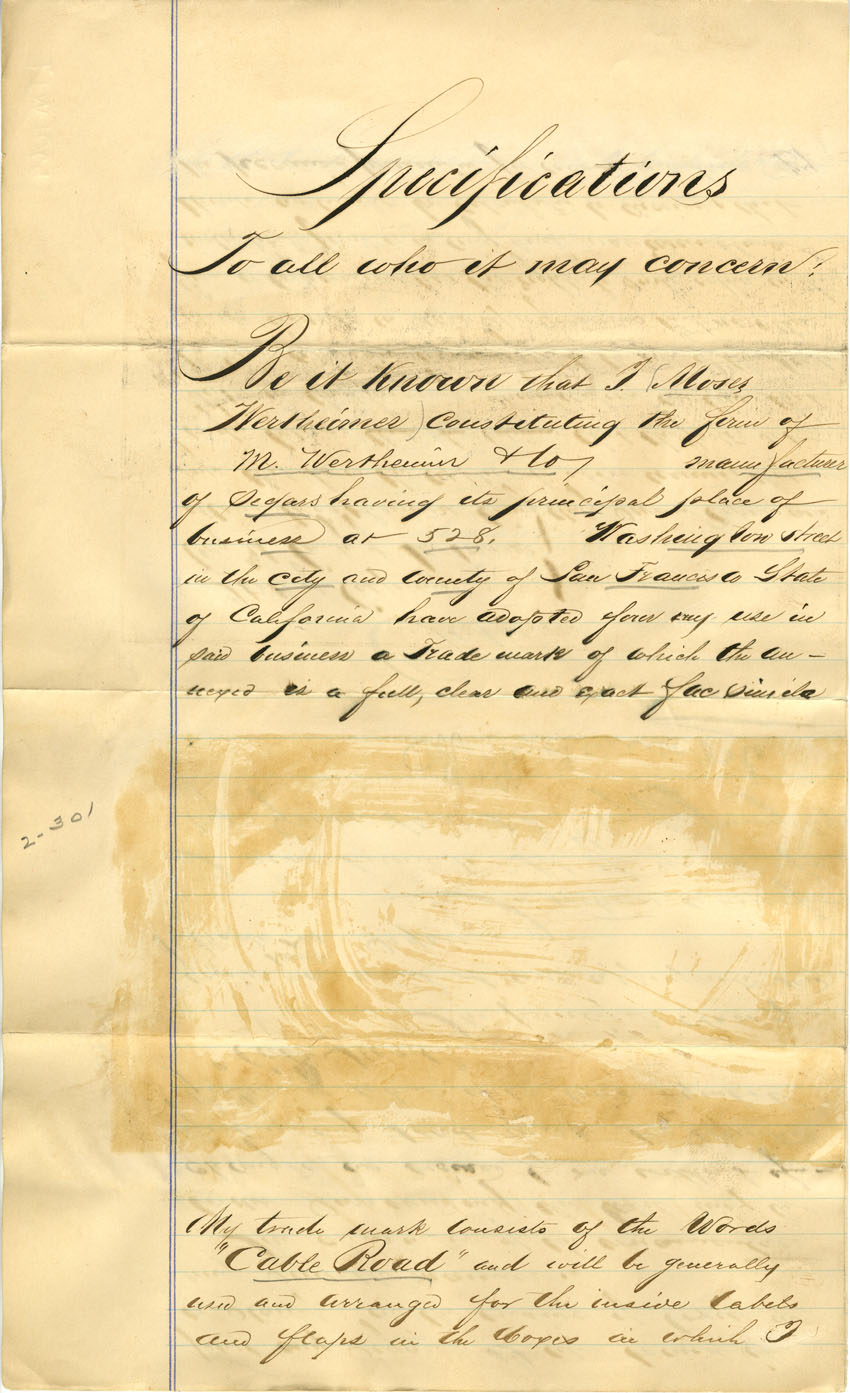 Specifications
To all who it may concern:
Be it Known that I (Moses
Wertheimer) constituting the firm of
M. Wertheimer & Co, manufacturer
of Segars having its principal place of
business at 528. Washington street
in the city and county of San Francisco State
of California have adopted four my use in
said business a Trade mark of which the an-
nexed is a full, clear and exact fac simile
2-301
My trade mark consists of the Words
"Cable Road" and will be generally
used and arranged for the inside labels
and flaps in the boxes in which I